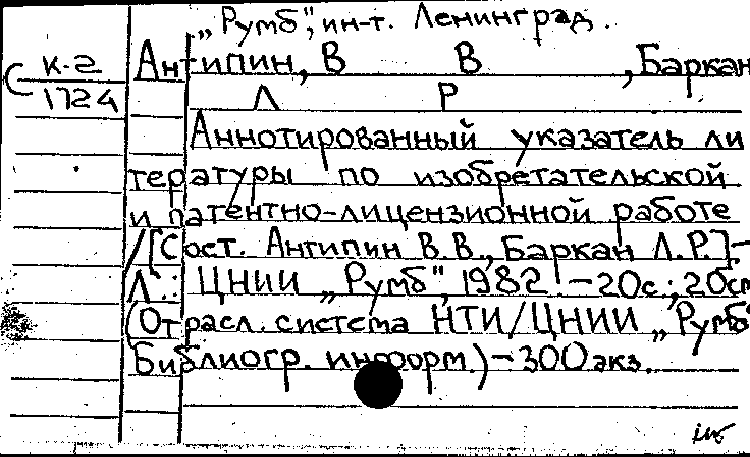 „Румб", ин-т. Ленинград.
С К-2
1724
Антипин, В В , Баркан
Л Р
Аннотированный указатель ли
тературы по изобретательской
и патентно-лицензионной работе
/[Сост. Антипин В.В., Баркан Л.Р.].-
Л.: ЦНИИ „Румб", 1982. -20с.; 20см
(Отрасл. система НТИ/ЦНИИ „Румб"
Библиогр. информ.) - 300 экз.